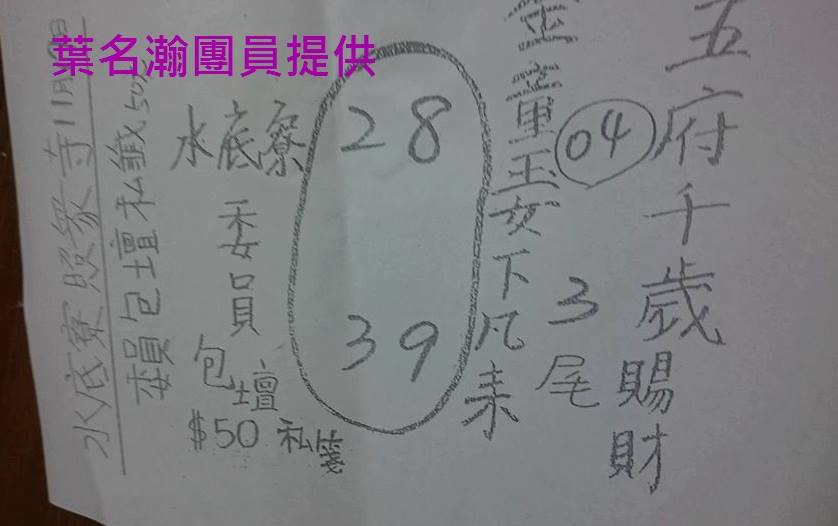 葉名瀚團員提供
五府千歲賜財
04
3尾
金童玉女下凡來
28
39
水底寮
委員
包壇
$50 私箋
委員包壇私籤50元
水底寮照眾寺11月